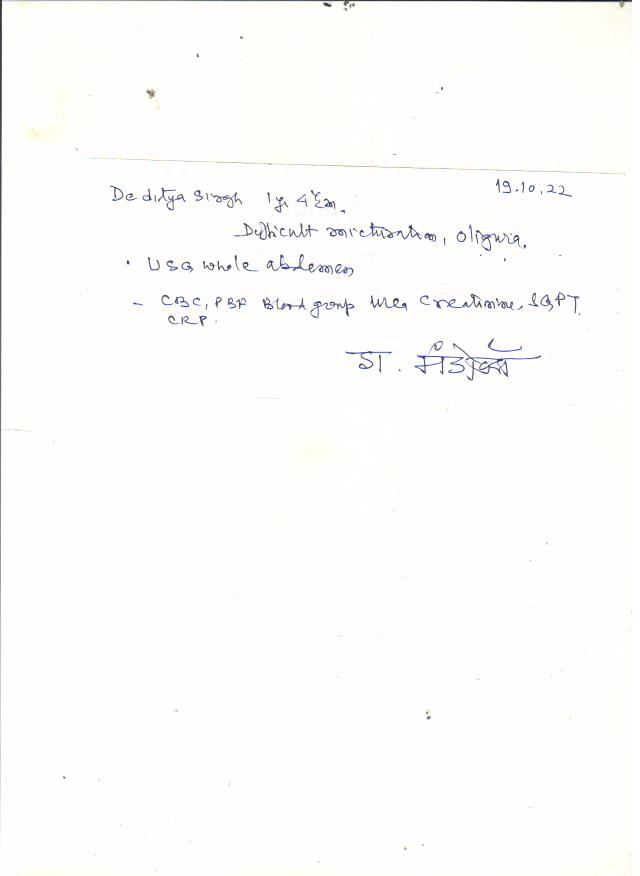 19.10.22
Deditya Singh 1 yr 4
Difficult micturation, oliguria.
• USG whole abdomen
- CBC, PBF Blood group Urea Creatinine, SGPT
CRP.
डा.